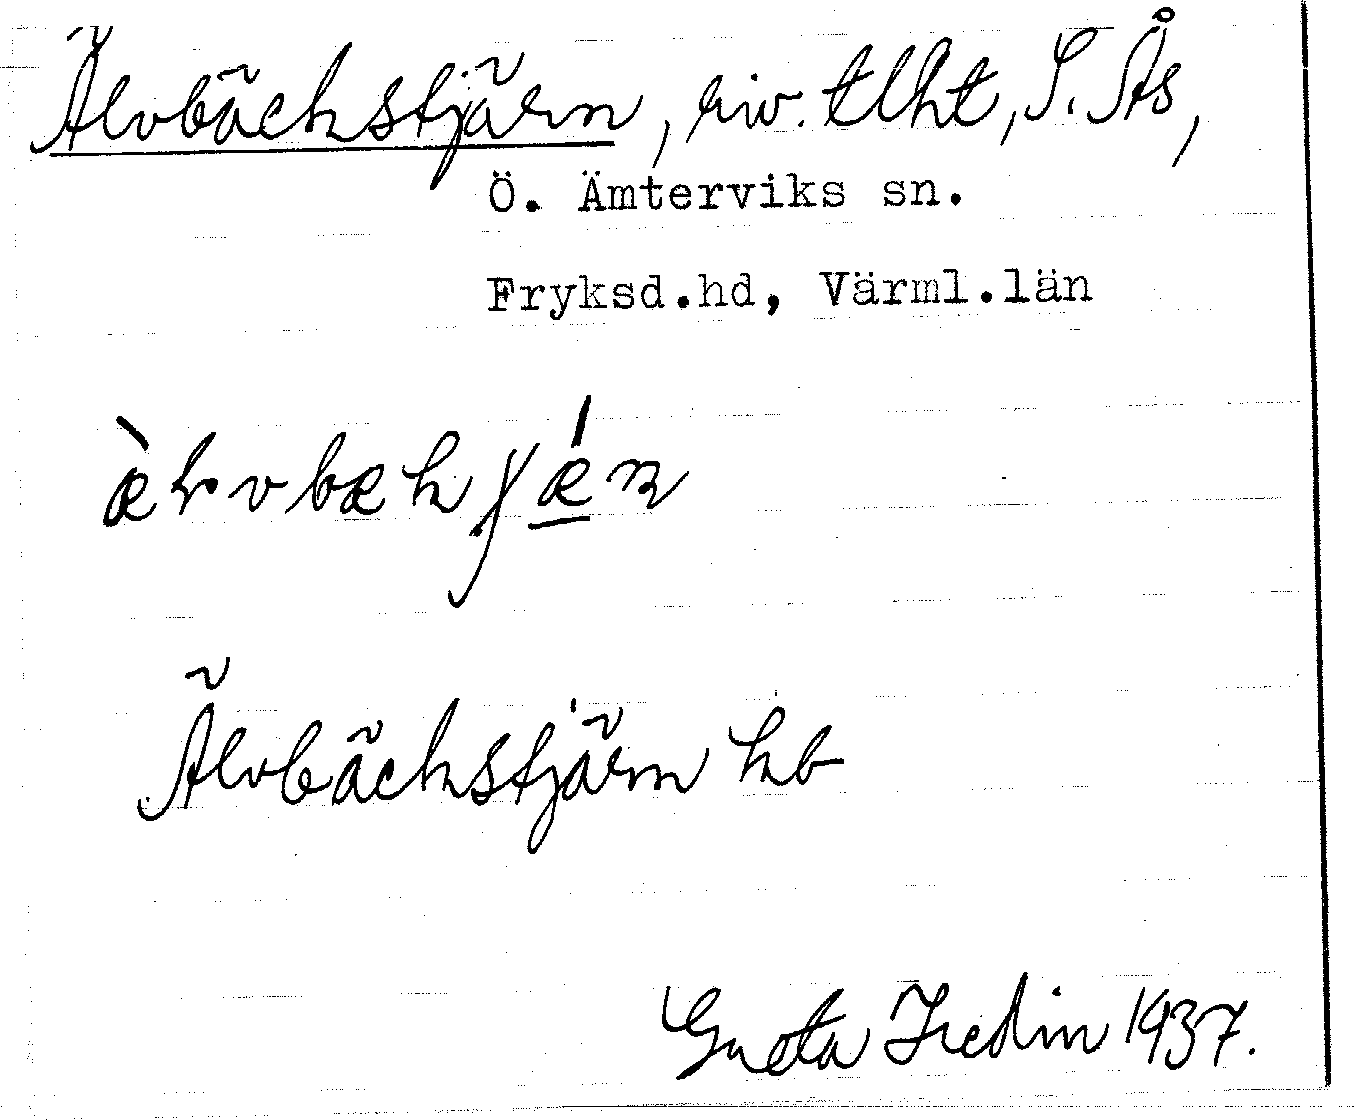 Älvbäckstjärn, riv. tlht, S. Ås,
Ö. Ämterviks sn.
Fryksd.hd, Värml.län
Älvbäckstjärn kb
Greta Hedin 1937.